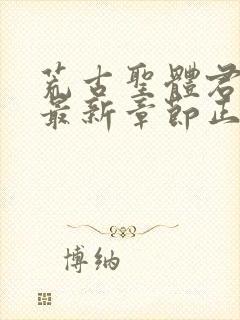 荒古聖體君
最新章節正
博納